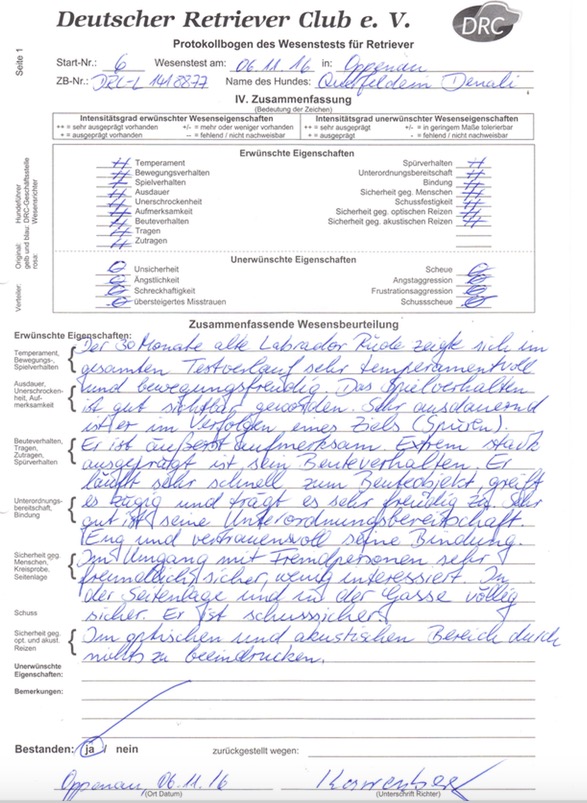 Deutscher Retriever Club e. V.
DRC
Protokollbogen des Wesenstests für Retriever
Seite 1
Start-Nr.: 6 Wesenstest am: 06.11.16 in: Oppenau
ZB-Nr.: DRC-L 1418877 Name des Hundes: Denali
IV. Zusammenfassung
(Bedeutung der Zeichen)
Intensitätsgrad erwünschter Wesenseigenschaften
++ = sehr ausgeprägt vorhanden +/- = mehr oder weniger vorhanden
+ = ausgeprägt vorhanden -- = fehlend / nicht nachweisbar
Intensitätsgrad unerwünschter Wesenseigenschaften
++ = sehr ausgeprägt +/- = in geringem Maße tolerierbar
+ = ausgeprägt -- = fehlend / nicht nachweisbar
Erwünschte Eigenschaften
Temperament
Bewegungsverhalten
Spielverhalten
Ausdauer
Unerschrockenheit
Aufmerksamkeit
Beuteverhalten
Tragen
Zutragen
Spürverhalten
Unterordnungsbereitschaft
Bindung
Sicherheit geg. Menschen
Schussfestigkeit
Sicherheit geg. optischen Reizen
Sicherheit geg. akustischen Reizen
Unerwünschte Eigenschaften
Unsicherheit
Ängstlichkeit
Schreckhaftigkeit
übersteigertes Misstrauen
Scheue
Angstaggression
Frustrationsaggression
Schussscheue
Verteiler:
Original: Hundeführer
gelb und blau: DRC-Geschäftsstelle
rosa: Wesensrichter
Zusammenfassende Wesensbeurteilung
Erwünschte Eigenschaften:
Temperament,
Bewegungs-,
Spielverhalten
Ausdauer,
Unerschrocken-
heit, Auf-
merksamkeit
Beuteverhalten,
Tragen,
Zutragen,
Spürverhalten
Unterordnungs-
bereitschaft,
Bindung
Sicherheit geg.
Menschen,
Kreisprobe,
Seitenlage
Schuss
Sicherheit geg.
opt. und akust.
Reizen
Der 30 Monate alte Labrador Rüde zeigte sich im
gesamten Testverlauf sehr temperamentvoll
und bewegungsfreudig. Das Spielverhalten
ist gut sichtbar geworden. Sehr ausdauernd
ist er im Verfolgen eines Ziels (Spüren).
Er ist äußerst aufmerksam. Extrem stark
ausgeprägt ist sein Beuteverhalten. Er
läuft sehr schnell zum Beuteobjekt, greift
es zügig und trägt es sehr freudig zu. Sehr
gut ist seine Unterordnungsbereitschaft.
Eng und vertrauensvoll seine Bindung.
Im Umgang mit Fremdpersonen sehr
freundlich, sicher, wenig interessiert. In
der Seitenlage und in der Gasse völlig
sicher. Er ist schusssicher.
Im optischen und akustischen Bereich durch
nichts zu beeindrucken.
Unerwünschte
Eigenschaften:
Bemerkungen:
Bestanden: ja / nein zurückgestellt wegen:
Oppenau, 06.11.16
(Ort Datum) (Unterschrift Richter)